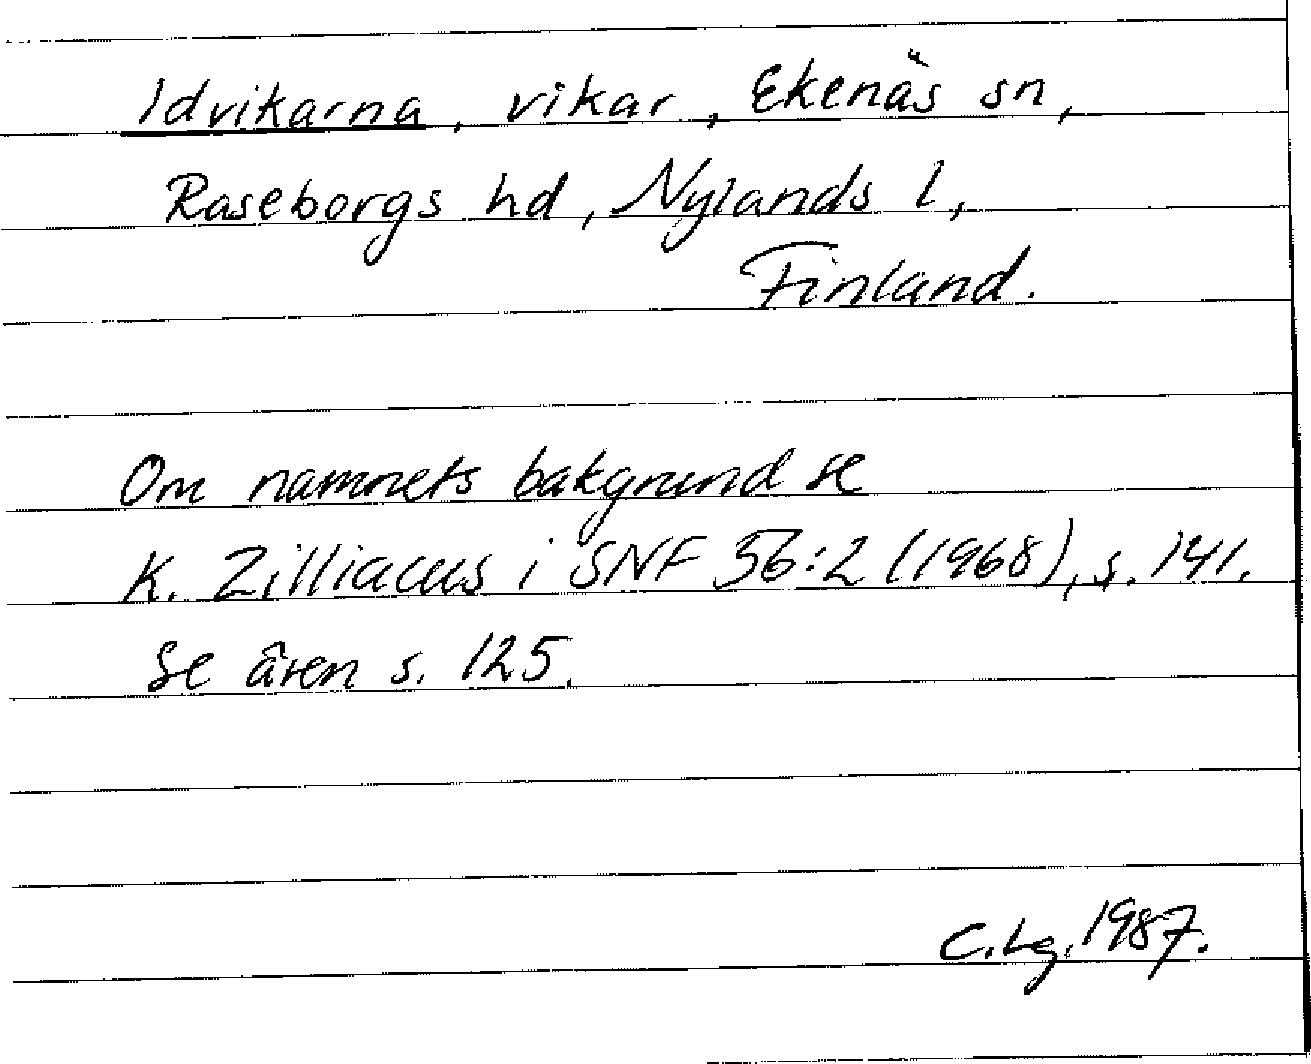 Idvikarna, vikar, Ekenäs sn,
Raseborgs hd, Nylands l,
Finland.
Om namnets bakgrund se
K. Zilliacus i SNF 56:2 (1968), s. 141.
Se även s. 125.
C.Lg. 1987.